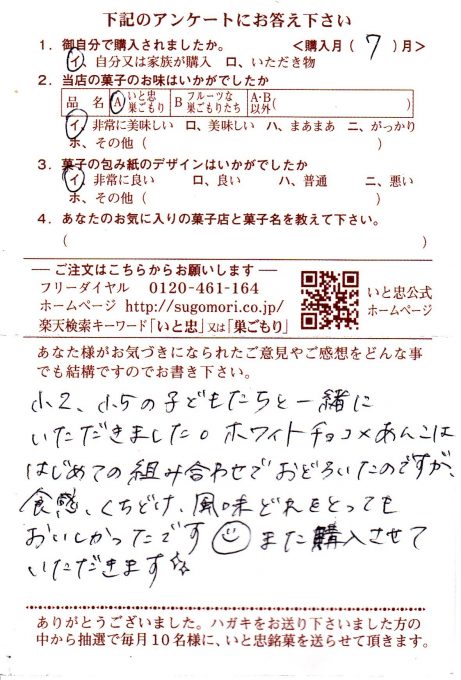 下記のアンケートにお答え下さい
1. 御自分で購入されましたか。 <購入月( 7 )月>
イ. 自分又は家族が購入 ロ. いただき物
2. 当店の菓子のお味はいかがでしたか
品名 A いと忠巣ごもり B フルーツな巣ごもりたち A・B以外( )
イ. 非常に美味しい ロ. 美味しい ハ. まあまあ ニ. がっかり
ホ. その他 ( )
3. 菓子の包み紙のデザインはいかがでしたか
イ. 非常に良い ロ. 良い ハ. 普通 ニ. 悪い
ホ. その他 ( )
4. あなたのお気に入りの菓子店と菓子名を教えて下さい。
( )
― ご注文はこちらからお願いします ―
フリーダイヤル 0120-461-164
ホームページ http://sugomori.co.jp/
楽天検索キーワード「いと忠」又は「巣ごもり」
いと忠公式
ホームページ
あなた様がお気づきになられたご意見やご感想をどんな事
でも結構ですのでお書き下さい。
小2、小5の子どもたちと一緒に
いただきました。ホワイトチョコ×あんこは
はじめての組み合わせでおどろいたのですが、
食感、くちどけ、風味どれをとっても
おいしかったです☺また購入させて
いただきます☆
ありがとうございました。ハガキをお送り下さいました方の
中から抽選で毎月10名様に、いと忠銘菓を送らせて頂きます。